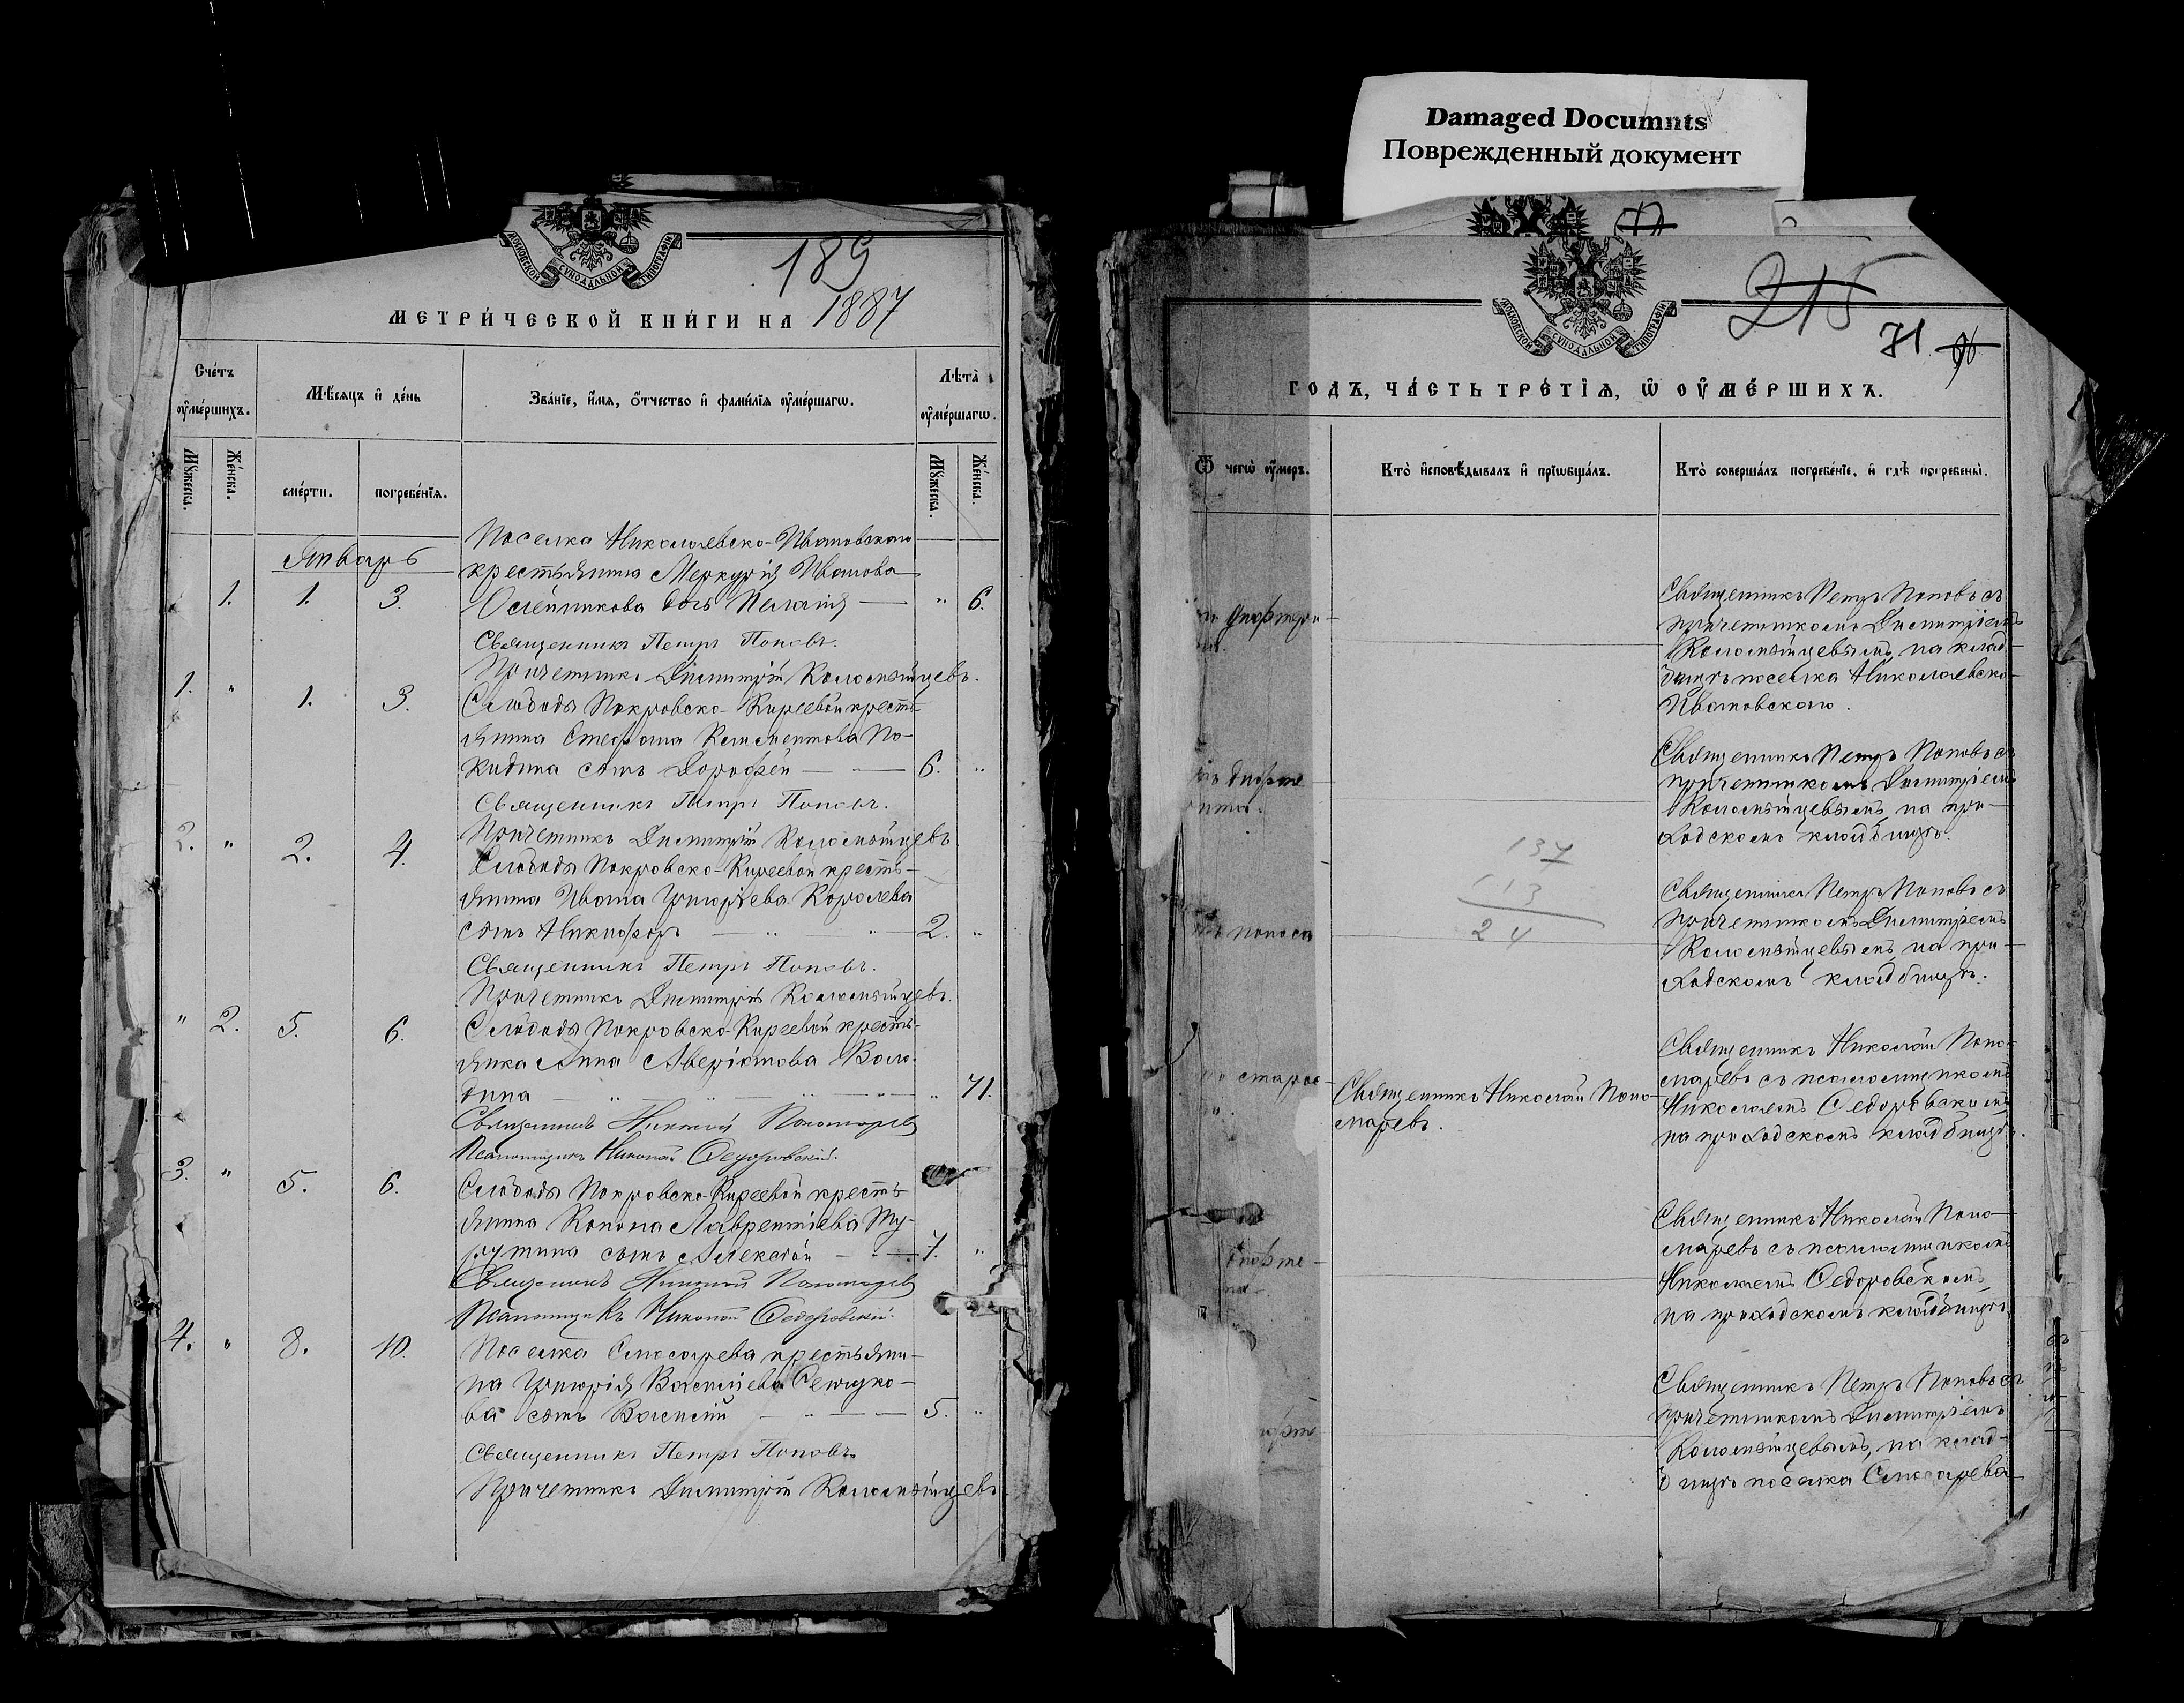 Damaged Documnts
Поврежденный документ
МОСКОВСКОЙ СУНОДАЛЬНОЙ ТИПОГРАФІИ
189
МЕТРИ́ЧЕСКОЙ КНИ́ГИ НА 1887
Сче́тъ ᲂу҆ме́ршихъ.
Мѣ́сяцъ и҆ де́нь
Зва́нїе, и҆́мя, ѻ҆́тчество и҆ фами́лїя ᲂу҆ме́ршагѡ.
Лѣ́та ᲂу҆ме́ршагѡ.
Мꙋ́жеска.
Же́нска.
сме́рти.
погребе́нїя.
Мꙋ́жеска.
Же́нска.
Январь
Поселка Николаевско-Ивановскаго
крестьянина Меркурія Иванова
1. 1. 3. Олейникова дочь Пелагія — " 6.
Священникъ Петръ Поповъ.
Причетникъ Димитрій Коломѣйцевъ.
1. " 1. 3. Слободы Покровско-Киреевой кресть-
янина Стефана Климентова По-
кидина сынъ Дорофей — — 6. "
Священникъ Петръ Поповъ.
Причетникъ Димитрій Коломѣйцевъ
2. " 2. 4. Слободы Покровско-Киреевой кресть-
янина Ивана Григорьева Королева
сынъ Никифоръ — " — " — 2. "
Священникъ Петръ Поповъ.
Причетникъ Димитрій Коломѣйцевъ.
" 2. 5. 6. Слободы Покровско-Киреевой кресть-
янка Анна Аверіанова Воло-
дина — " — " — " — " 71.
Священникъ Николай Пономаревъ
Псаломщикъ Николай Федоровскій.
3. " 5. 6. Слободы Покровско-Киреевой кресть-
янина Конона Лаврентіева
сынъ Алексѣй — " — 7. "
Священникъ Николай Пономаревъ
Псаломщикъ Николай Федоровскій.
4. " 8. 10. Поселка Слюсарева крестьяни-
на Григорія Васильева
сынъ Василій — " — — 5. "
Священникъ Петръ Поповъ.
Причетникъ Димитрій Коломѣйцевъ
МОСКОВСКОЙ СУНОДАЛЬНОЙ ТИПОГРАФІИ
215
71
ГОДЪ, ЧА́СТЬ ТРЕ́ТЇѦ, Ѡ҆ ОУ҆МЕ́РШИХЪ.
Ѿ чегѡ̀ ᲂу҆́меръ.
Кто̀ и҆сповѣ́дывалъ и҆ прїѡбща́лъ.
Кто̀ соверша́лъ погребе́нїе, и҆ гдѣ̀ погребены̀.
Священникъ Петръ Поповъ съ
причетникомъ Димитріемъ
Коломѣйцевымъ, на клад-
бищѣ поселка Николаевско-
Ивановскаго.
Священникъ Петръ Поповъ съ
причетникомъ Димитріемъ
Коломѣйцевымъ, на при-
ходскомъ кладбищѣ.
137
113
24
Священникъ Петръ Поповъ съ
причетникомъ Димитріемъ
поноса
Коломѣйцевымъ, на при-
ходскомъ кладбищѣ.
Священникъ Николай Поно-
старос-
Священникъ Николай Поно-
марев.
маревъ съ псаломщикомъ
Николаемъ Федоровскимъ
на приходскомъ кладбищѣ.
Священникъ Николай Поно-
маревъ съ псаломщикомъ
Николаемъ Федоровскимъ,
на приходскомъ кладбищѣ.
Священникъ Петръ Поповъ съ
причетникомъ Димитріемъ
Коломѣйцевымъ, на клад-
бищѣ поселка Слюсарева